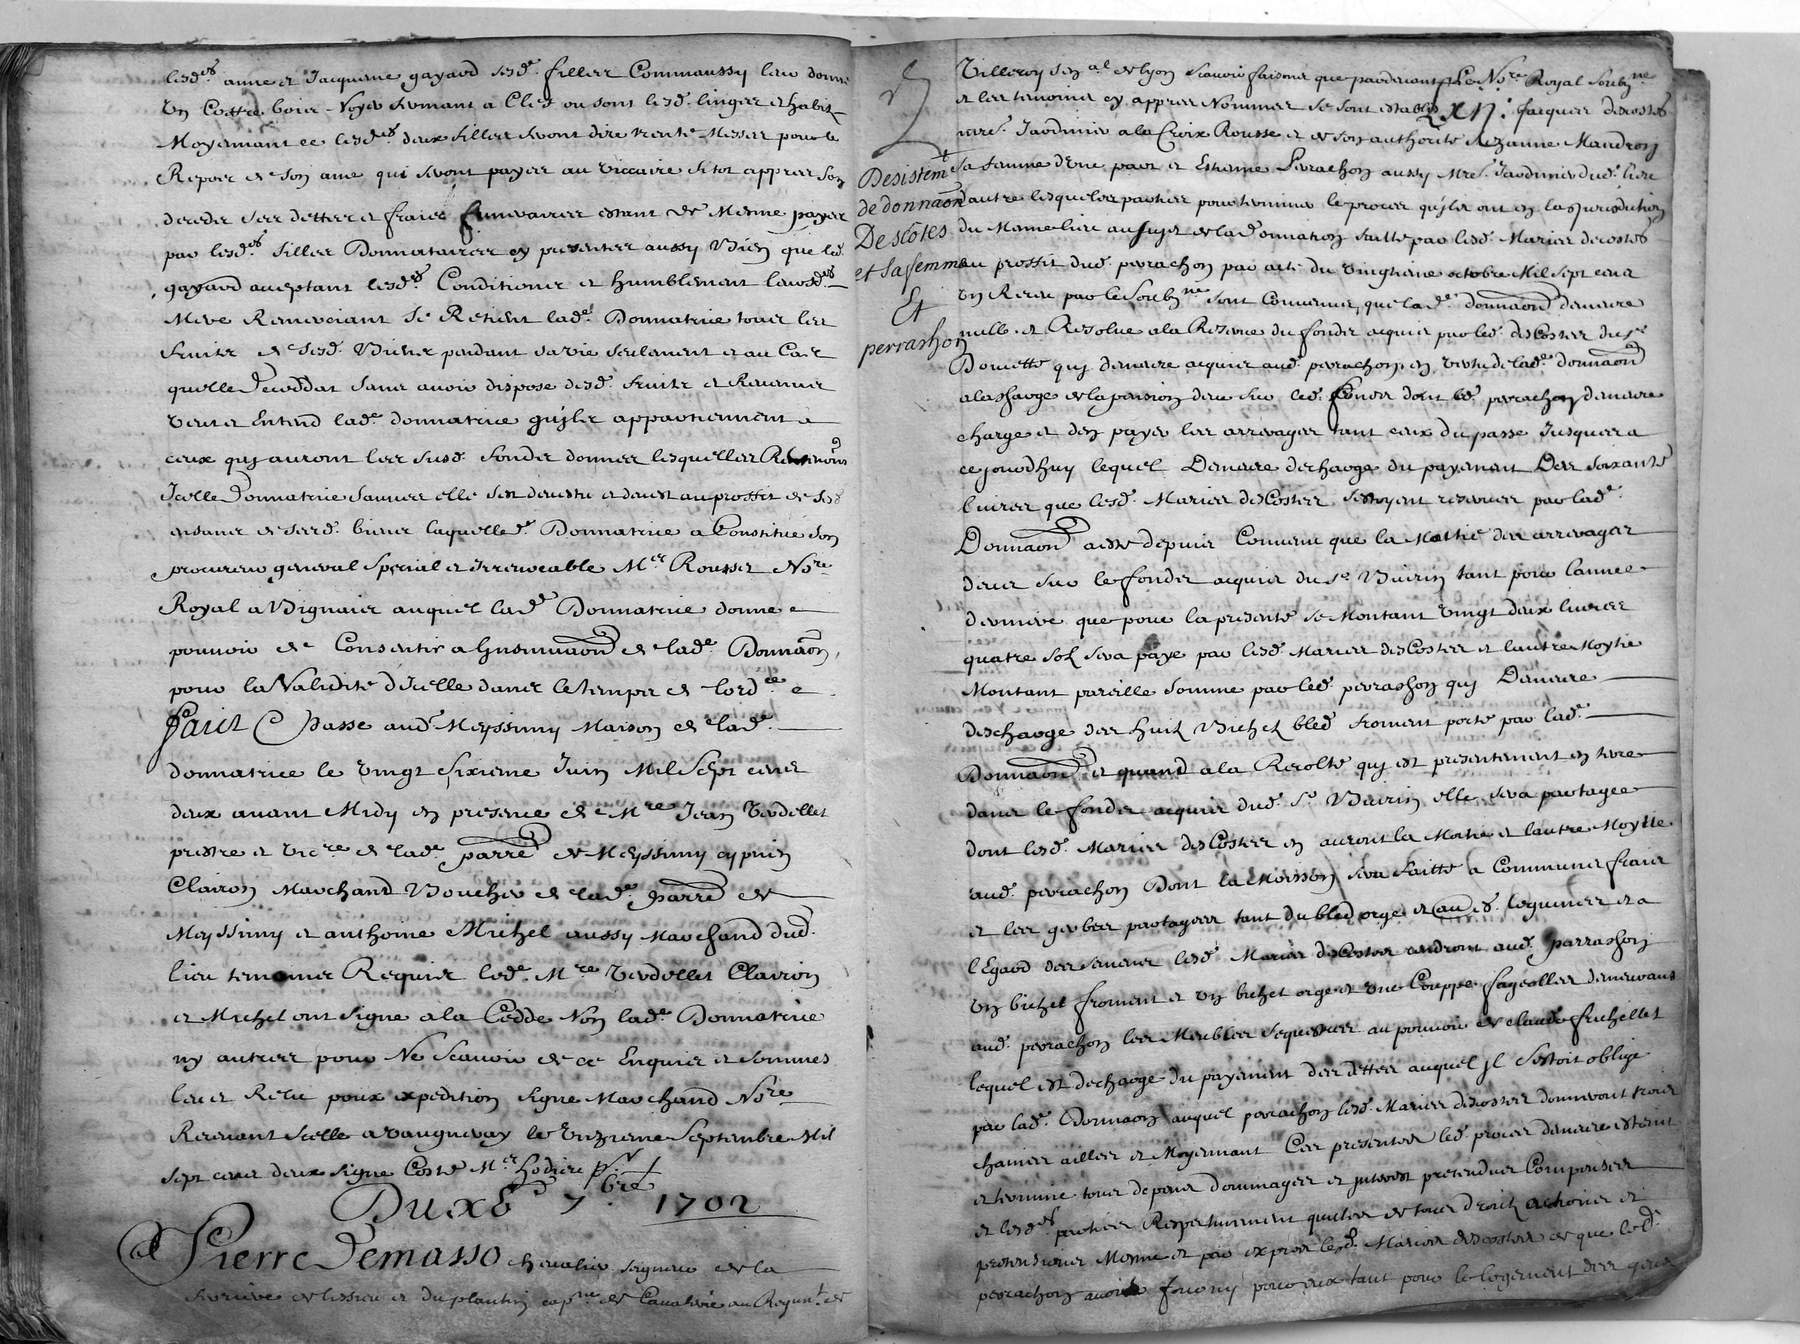 lesd.es anne et Jacqueme gayard sesd. filles Commaussy leur donne
Un Coffre bois Noyer fermant a Clef ou sont lesd. linges et habitz
Moyennant ce lesd.es deux filles feront dire trente Messes pour le
Repos de son ame qui seront payes au viccaire sitot appres son
deceder ses dettes et fraies funeraires estant de Mesme payes
par lesd.es filles Donnataires cy presentes aussy Bien que led.
gayard acceptant lesd.es Conditions et humblement leursd.es
Mere Remerciant Se Retient lad.e Donnatrice tous les
fruits de sesd. Biens pendant sa vie seulement et au Cas
quelle deceddat sans avoir dispose desd. fruits et Revenus
veut et Entend lad.e donnatrice quils appartiennent a
ceux qui auront les susd. fonds donnes lesquelles
Icelle Donnatrice sauves elle sen devestu et devest au proffit de ses
enfans de sesd. biens laquelle d. Donnatrice a Constitué son
procureur general special et Irrevocable M.er Rousset No.re
Royal a Bignais auquel lad.e Donnatrice donne
pouvoir de Consentir a Linsinuaon de lad.e Donnaon
pour la Validite dicelle dans le temps de lord.ce
Fait & Passe aud. Meyssimy Maison de lad.e
donnatrice le vingt sixieme Juin Mil Sept cens
deux avant Midy en presence de M.re Jean Verdellet
prestre et vic.re de lad.e parre de Meyssimy cyprien
Clairon Marchand Boucher de lad.e parre de
Meyssimy et anthoine Michel aussy Marchand dud.
lieu temoins Requis led.e M.re Verdellet Clairon
et Michel ont signe a la Cedde Non lad.e Donnatrice
ny autres pour Ne Scavoir de ce Enquis et sommes
leus Relu pour expedition signe Marchand No.re
Recevant Icelle a vaugneray le Unzieme Septembre Mil
sept cens deux signe Coste M.er
Du xe 7.bre 1702
Pierre Demasso chevalier seigneur de la
ferriere de lissieu et du plantin cap.ne de Cavalerie au Regim.t de
Villeroy sen.al de lyon Scavoir faisons que pardevant Le No.re Royal soubz.ne
et les temoins cy appres Nommes se sont establis Jacques descostes
m.re Jardinier a la Croix Rousse et de son authorite Suzanne Mandron
Desistem.t
de donnaon
Descotes
et Sa femme
Et
perrashon
sa femme dune part et Estienne perrachon aussy M.re Jardinier dud. lieu
dautre lesquelles parties pour terminer le proces quils ont en la Jurisdiction
du Mesme lieu au sujet de lad. Donnation faitte par lesd. Maries descostes
au proffit dud. perrachon par acte du vingtieme octobre Mil sept cens
Un Receu par le Soubz.ne sont Convenus que lad.e donnaon demeure
nulle et Resolue a la Reserve du fonds acquis par led. desCostes du s.r
Donette qui demeure acquis aud. perrachon en vertu de lad.e donnaon
a la charge de la pension deue sur led. fonds dont led. perrachon demeure
charge et den payer les arrerages tant ceux du passe Jusques a
ce jourdhuy lequel Demeure decharge du payement Des soixante
livres que lesd. Maries desCostes sestoyent reserves par lad.e
Donnaon a este depuis Convenu que la Moitie des arrerages
deus sur le fonds acquis du s.r Buirin tant pour lannee
derniere que pour la presente se Montant Vingt deux livres
quatre solz sera paye par lesd. Maries desCostes et lautre Moytie
Montant pareille somme par led. perrashon qui Demeure
descharge des huit Bichetz bled froment porte par lad.e
Donnaon et quand a la Recolte qui est presentement en terre
dans le fonds acquis dud. s.r Buirin elle sera partagee
dont lesd. Maries desCostes en auront la Moitie et lautre Moytie
aud. perrachon Dont la Moisson sera faitte a Communs fraix
et les gerbes partagees tant du bled orge et au es legumes et a
lEgard des semences lesd. Maries desCostes rendront aud. parrashon
Un bichet froment et Un bichet orge et Une Couppe fageolles demeurans
aud. perrachon les Meubles sequestres au pouvoir de claude frichellet
lequel est decharge du payement des dettes auquel Jl sestoit oblige
par lad.e Donnaon auquel perrachon lesd. Maries descostes donneront trois
chaines ailles et Moyennant Ces presentes led. proces demeure esteint
et termine tous depens dommages et interest pretendus Compenses
et lesd.es parties Respectivement quittes de tous droitz actions et
pretensions Mesme et par expres lesd. Maries descostes de que led.
perrachon avoit fourny pour eux tant pour le logement des gens